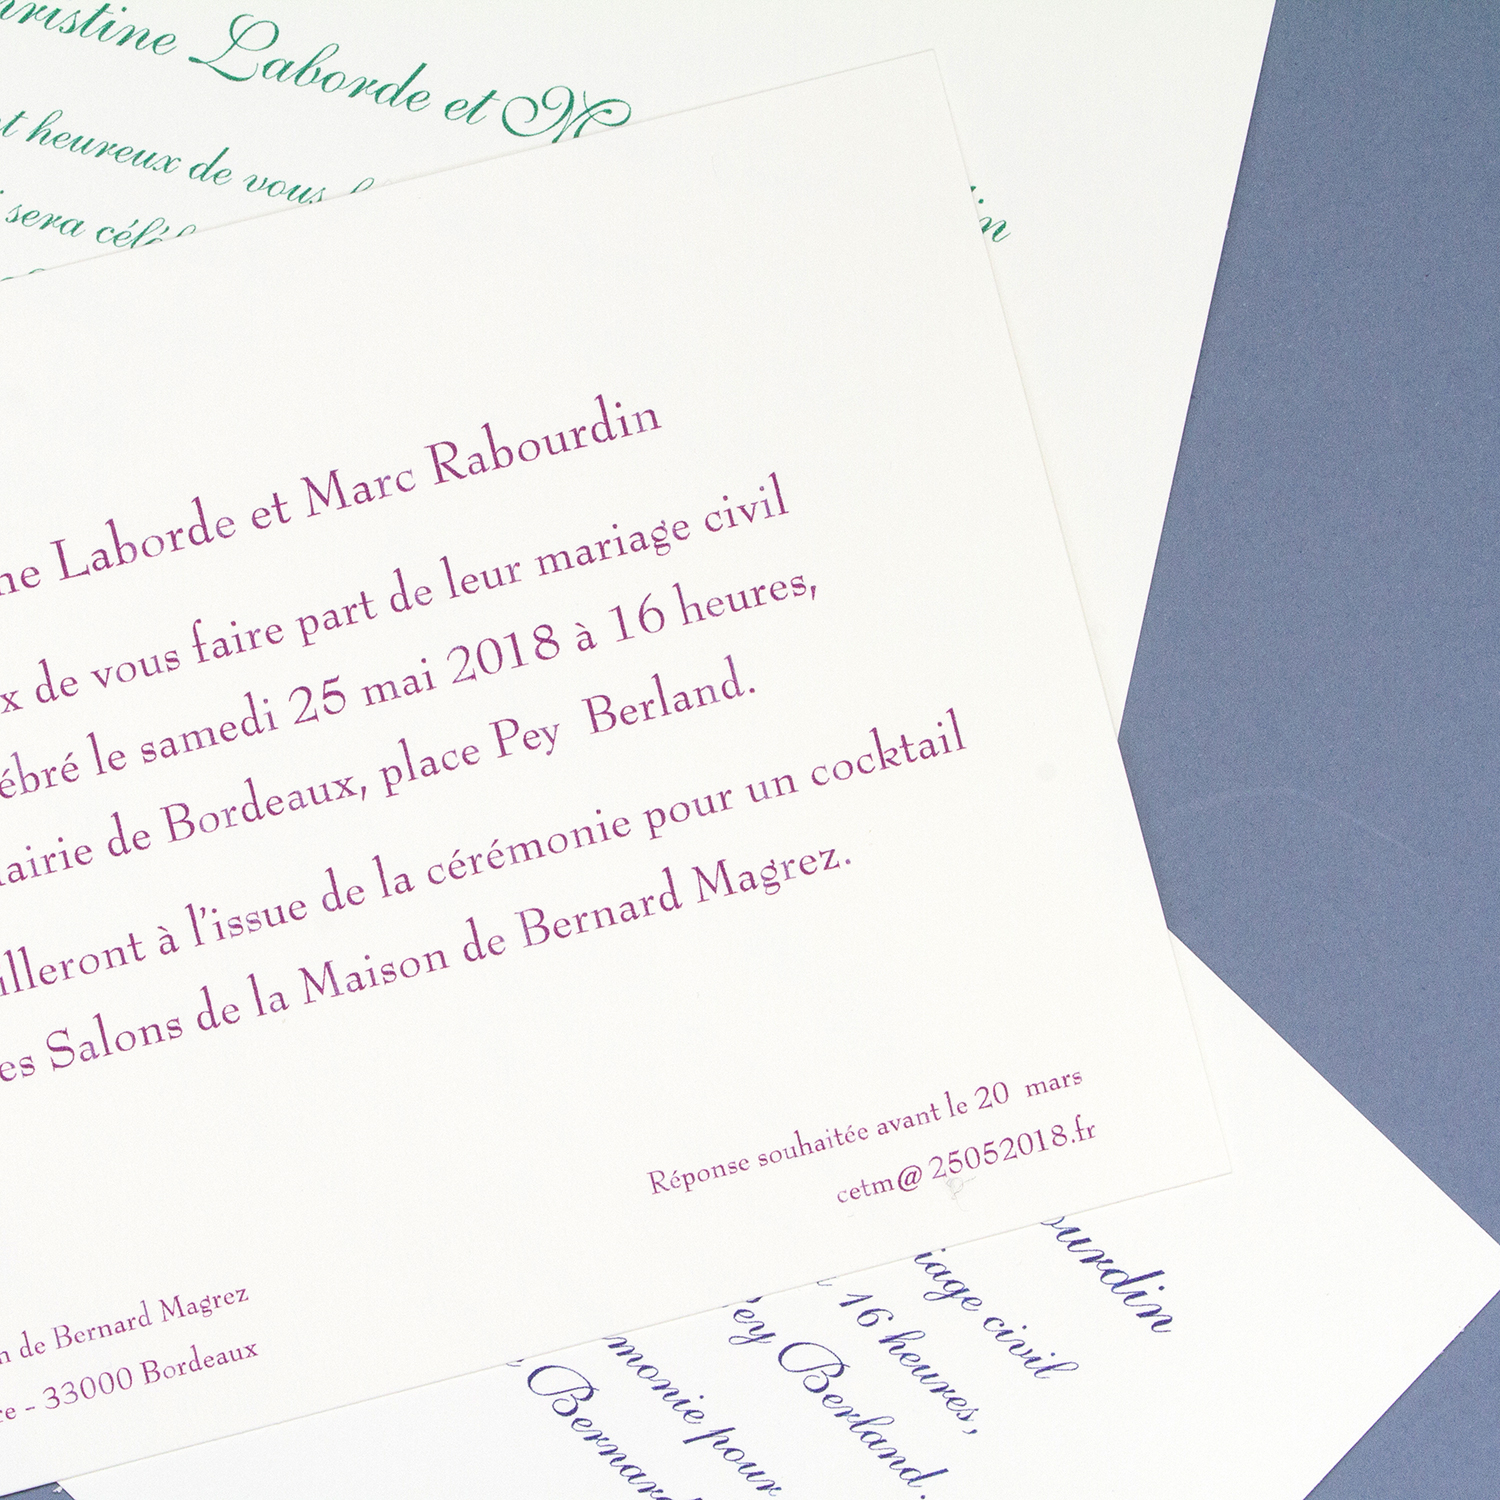 ristine Laborde et M
t heureux de vous
sera célé
in
ne Laborde et Marc Rabourdin
x de vous faire part de leur mariage civil
ébré le samedi 25 mai 2018 à 16 heures,
airie de Bordeaux, place Pey Berland.
illeront à l'issue de la cérémonie pour un cocktail
es Salons de la Maison de Bernard Magrez.
Réponse souhaitée avant le 20 mars
cetm@ 25052018.fr
n de Bernard Magrez
ce - 33000 Bordeaux
ourdin
iage civil
16 heures,
ey Berland.
monie pour
Bernard